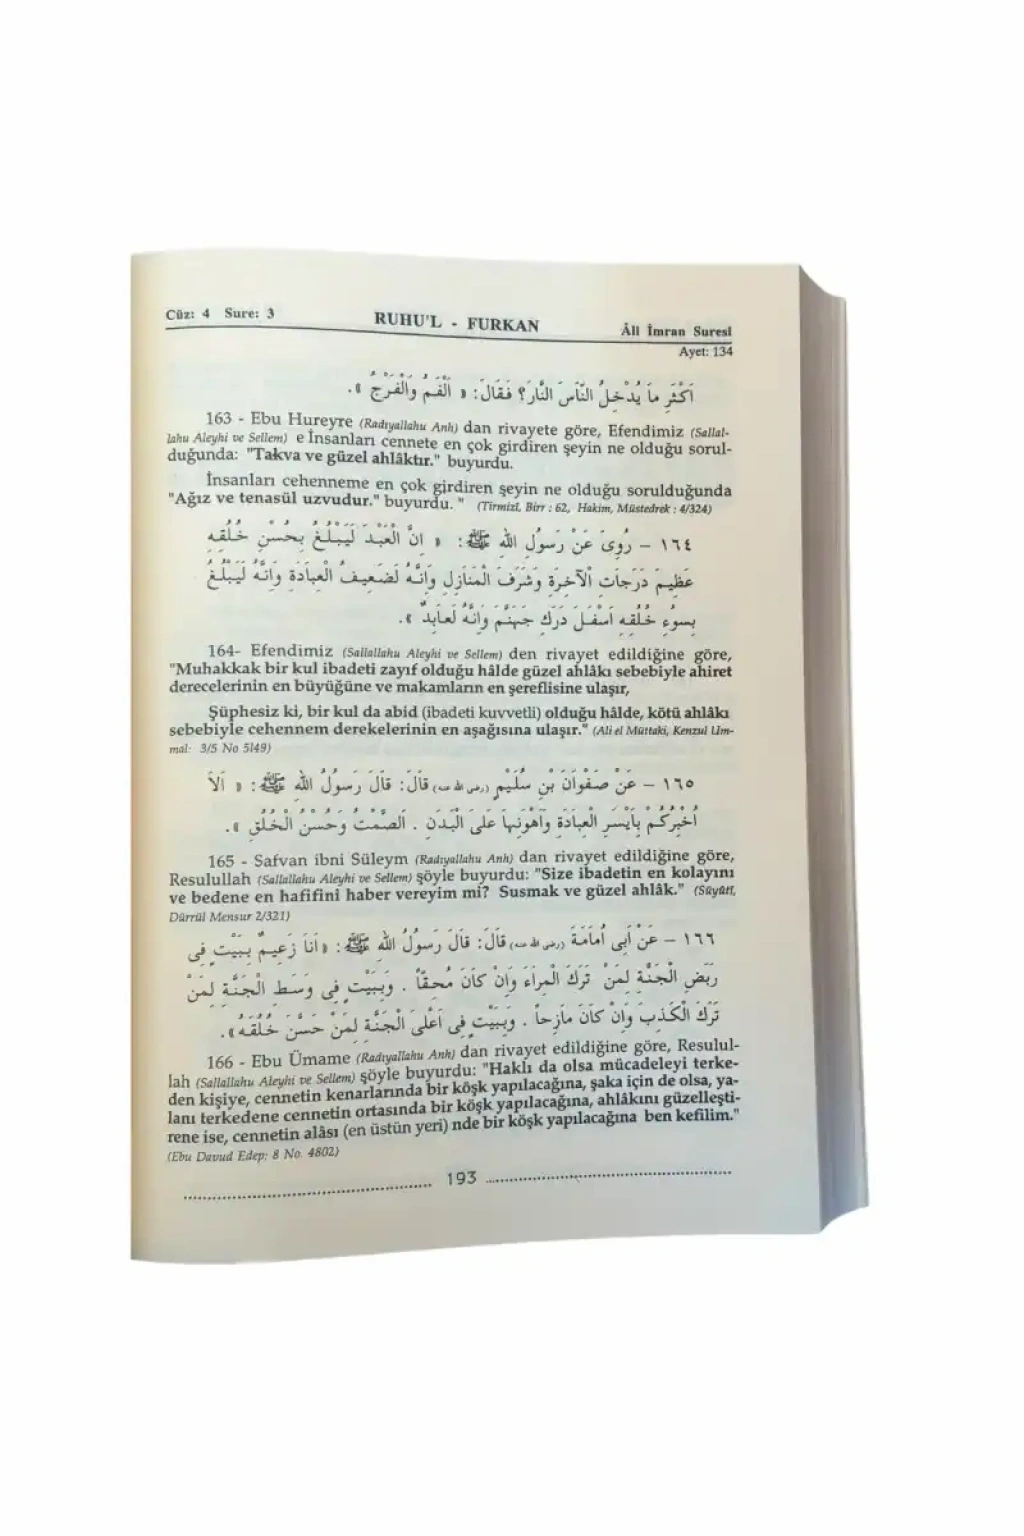 Cüz: 4 Sure: 3
RUHU'L - FURKAN
Âli İmran Suresi
Ayet: 134
اَكْثَرِ مَا يُدْخِلُ النَّاسَ النَّارَ؟ فَقَالَ: « اَلْفَمُ وَالْفَرْجُ ».
163 - Ebu Hureyre (Radıyallahu Anh) dan rivayete göre, Efendimiz (Sallal-
lahu Aleyhi ve Sellem) e İnsanları cennete en çok girdiren şeyin ne olduğu sorul-
duğunda: "Takva ve güzel ahlâktır." buyurdu.
İnsanları cehenneme en çok girdiren şeyin ne olduğu sorulduğunda
"Ağız ve tenasül uzvudur." buyurdu. " (Tirmizî, Birr : 62, Hakim, Müstedrek : 4/324)
١٦٤ – رُوِىَ عَنْ رَسُولِ اللهِ ﷺ: « اِنَّ الْعَبْدَ لَيَبْلُغُ بِحُسْنِ خُلُقِهِ
عَظِيمَ دَرَجَاتِ اْلآخِرَةِ وَشَرَفَ الْمَنَازِلِ وَاِنَّهُ لَضَعِيفُ الْعِبَادَةِ وَاِنَّهُ لَيَبْلُغُ
بِسُوءِ خُلُقِهِ اَسْفَلَ دَرَكِ جَهَنَّمَ وَاِنَّهُ لَعَابِدٌ ».
164- Efendimiz (Sallallahu Aleyhi ve Sellem) den rivayet edildiğine göre,
"Muhakkak bir kul ibadeti zayıf olduğu hâlde güzel ahlâkı sebebiyle ahiret
derecelerinin en büyüğüne ve makamların en şereflisine ulaşır,
Şüphesiz ki, bir kul da abid (ibadeti kuvvetli) olduğu hâlde, kötü ahlâkı
sebebiyle cehennem derekelerinin en aşağısına ulaşır." (Ali el Müttaki, Kenzul Um-
mal: 3/5 No 5149)
١٦٥ – عَنْ صَفْوَانَ بْنِ سُلَيْمٍ (رضى الله عنه) قَالَ: قَالَ رَسُولُ اللهِ ﷺ: « اَلاَ
اُخْبِرُكُمْ بِاَيْسَرِ الْعِبَادَةِ وَاَهْوَنِهَا عَلَى الْبَدَنِ . اَلصَّمْتُ وَحُسْنُ الْخُلُقِ ».
165 - Safvan ibni Süleym (Radıyallahu Anh) dan rivayet edildiğine göre,
Resulullah (Sallallahu Aleyhi ve Sellem) şöyle buyurdu: "Size ibadetin en kolayını
ve bedene en hafifini haber vereyim mi? Susmak ve güzel ahlâk." (Süyûtî,
Dürrül Mensur 2/321)
١٦٦ – عَنْ اَبِى اُمَامَةَ (رضى الله عنه) قَالَ: قَالَ رَسُولُ اللهِ ﷺ: « اَنَا زَعِيمٌ بِبَيْتٍ فِى
رَبَضِ الْجَنَّةِ لِمَنْ تَرَكَ الْمِرَاءَ وَاِنْ كَانَ مُحِقًّا . وَبِبَيْتٍ فِى وَسَطِ الْجَنَّةِ لِمَنْ
تَرَكَ الْكَذِبَ وَاِنْ كَانَ مَازِحاً . وَبِبَيْتٍ فِى اَعْلَى الْجَنَّةِ لِمَنْ حَسَّنَ خُلُقَهُ».
166 - Ebu Ümame (Radıyallahu Anh) dan rivayet edildiğine göre, Resulul-
lah (Sallallahu Aleyhi ve Sellem) şöyle buyurdu: "Haklı da olsa mücadeleyi terke-
den kişiye, cennetin kenarlarında bir köşk yapılacağına, şaka için de olsa, ya-
lanı terkedene cennetin ortasında bir köşk yapılacağına, ahlâkını güzelleşti-
rene ise, cennetin alâsı (en üstün yeri) nde bir köşk yapılacağına ben kefilim."
(Ebu Davud Edep: 8 No. 4802)
193